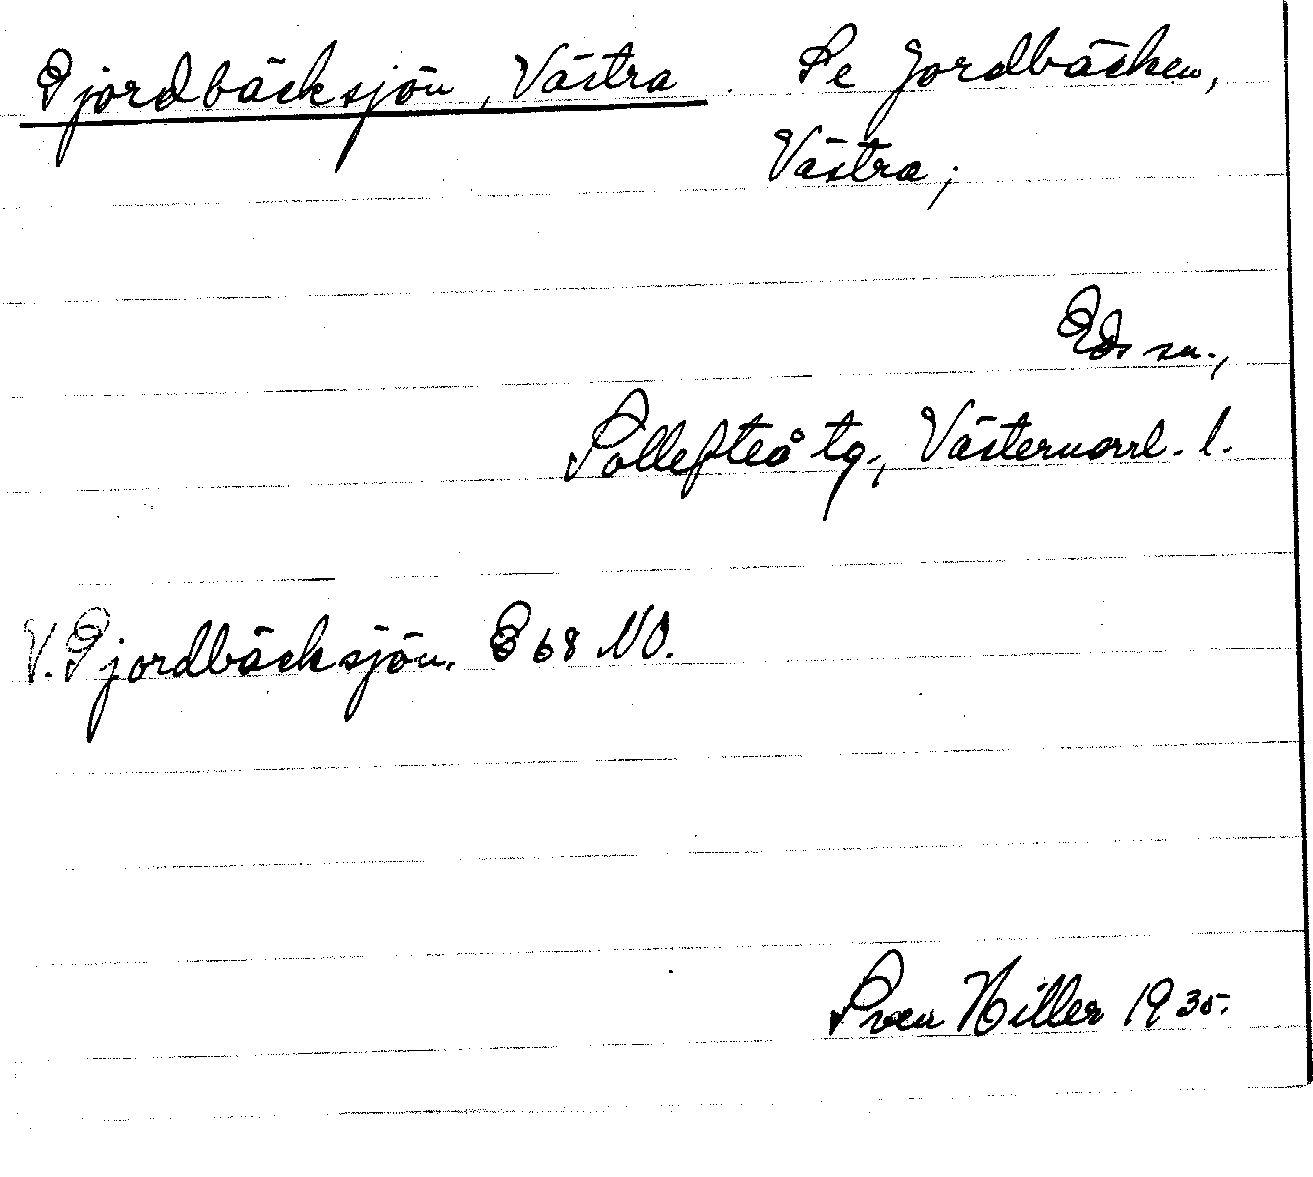 Djordbäcksjön, Västra. Se Jordbäcken,
Västra;
Eds sn.,
Sollefteå tg., Västernorrl. l.
V. Djordbäcksjön. E 68 NO.
Sven Hiller 1935.